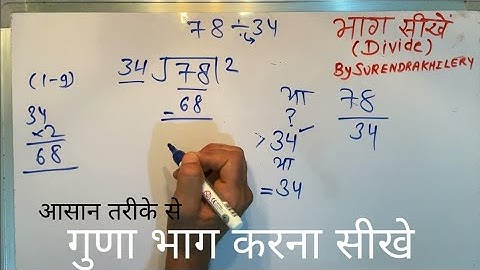 78 ÷ 34
भाग सीखें
(Divide)
By SURENDRAKHILERY
(1-9)
34
×2
68
34 ) 78 ( 2
- 68
या
?
> 34 ✓
या
= 34
78
34
आसान तरीके से
गुणा भाग करना सीखे